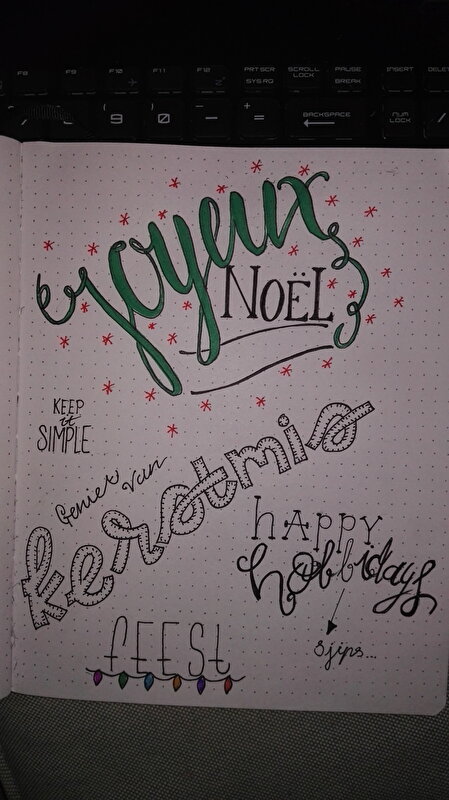 F8 F9 F10 F11 F12 PRTSCR SYSRQ SCROLL LOCK PAUSE BREAK INSERT
9 0 - + = BACKSPACE NUM LOCK /
Joyeux
NOËL
KEEP
it
SIMPLE
Geniet van
kerstmis
hAPPY
holidays
Sjips...
fEESt